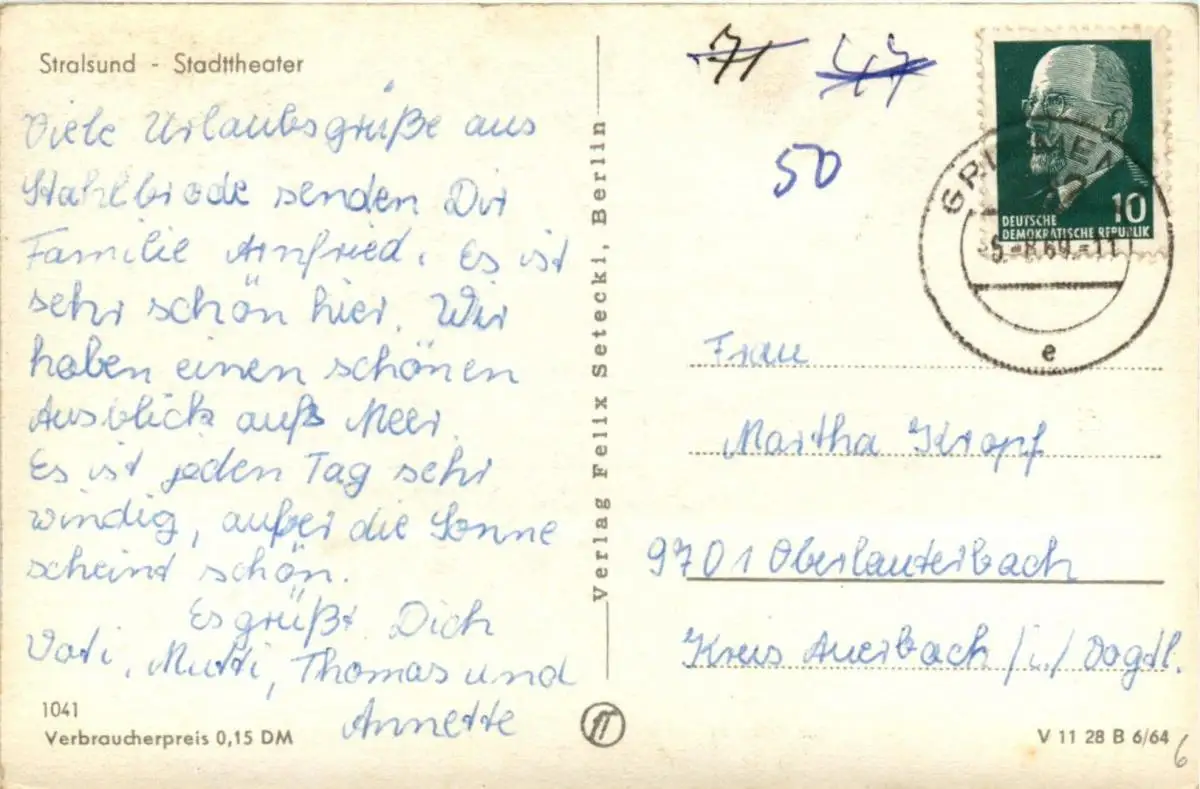 Stralsund - Stadttheater
Viele Urlaubsgrüße aus
Stahlbrode senden Dir
Familie Arnfried. Es ist
sehr schön hier. Wir
haben einen schönen
Ausblick aufs Meer.
Es ist jeden Tag sehr
windig, außer die Sonne
scheint schön.
Es grüßt Dich
Vati, Mutti, Thomas und
Annette
1041
Verbraucherpreis 0,15 DM
Verlag Felix Setecki, Berlin
71 47
50
DEUTSCHE
DEMOKRATISCHE REPUBLIK
10
GRIMMEN
e
Frau
Martha Kropf
9701 Oberlauterbach
Kreis Auerbach /i./ Vogtl.
V 11 28 B 6/64
6